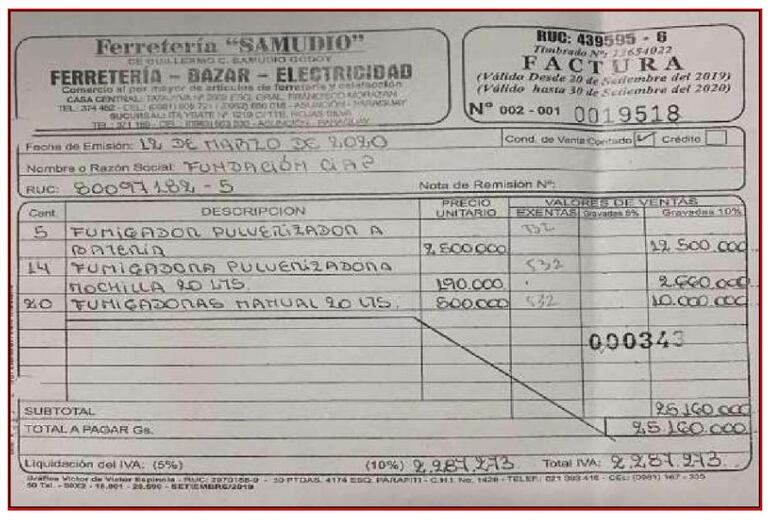 Ferretería "SAMUDIO"
DE GUILLERMO C. SAMUDIO GODOY
FERRETERÍA - BAZAR - ELECTRICIDAD
Comercio al por mayor de artículos de ferretería y calefacción
CASA CENTRAL: ESQ. GRAL. FRANCISCO MORAZAN
ASUNCIÓN - PARAGUAY
SUCURSAL: ITAYBATE Nº 1219 C/ TTE. ROJAS SILVA
ASUNCIÓN - PARAGUAY
RUC: 439595 - 6
Timbrado Nº: 13654022
FACTURA
(Válido Desde 20 de Setiembre del 2019)
(Válido hasta 30 de Setiembre del 2020)
Nº 002 - 001 0019518
Fecha de Emisión: 12 DE MARZO DE 2020 Cond. de Venta: Contado ✓ Crédito
Nombre o Razón Social: FUNDACIÓN CIAP
RUC: 80097182-5 Nota de Remisión Nº:
Cant. DESCRIPCION PRECIO UNITARIO VALORES DE VENTAS
EXENTAS Gravadas 5% Gravadas 10%
5 FUMIGADOR PULVERIZADOR A 532
BATERIA 2.500.000 12.500.000
14 FUMIGADORA PULVERIZADORA 532
MOCHILLA 20 LTS. 190.000 2.660.000
20 FUMIGADORAS MANUAL 20 LTS. 500.000 532 10.000.000
000343
SUBTOTAL 25.160.000
TOTAL A PAGAR Gs. 25.160.000
Liquidación del IVA: (5%) (10%) 2.287.273 Total IVA: 2.287.273
Gráfica Victor de Victor Espinola - RUC: - 30 PTDAS. 4174 ESQ. PARAPITI - C.H.I. No. 1428 - TELEF.: 021
50 Tal. - 50X2 - - SETIEMBRE/2019